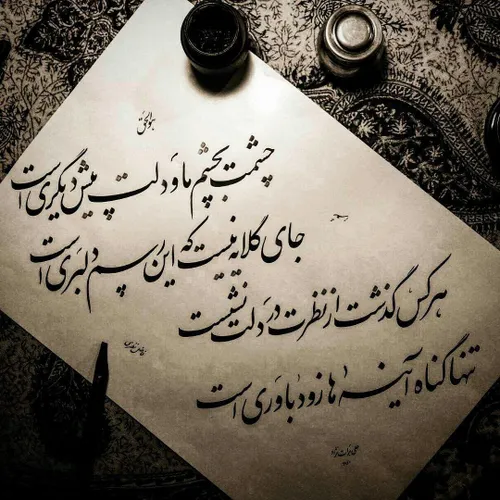 هوالحق
چشمت بچشم ما و دلت پیش دیگری است
جای گلایه نیست که این رسم دلبری است
هرکس گذشت از نظرت در دلت نشست
تنها گناه آینه ها زود باوری است